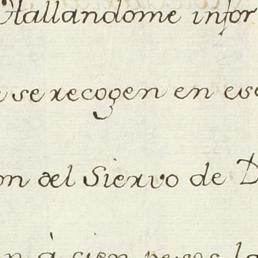 Hallandome infor
se recogen en es
on del Siervo de D
n à cien pesos la